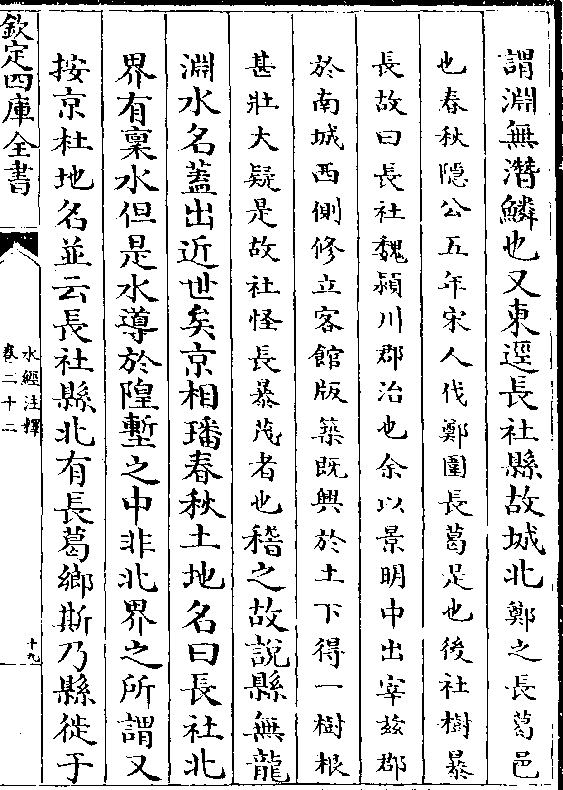 謂淵無潛鱗也又東逕長社縣故城北鄭之長葛邑
也春秋隱公五年宋人伐鄭圍長葛是也後社樹暴
長故曰長社魏潁川郡治也余以景明中出宰兹郡
於南城西側修立客館版築既興於土下得一樹根
甚壯大疑是故社怪長暴茂者也稽之故說縣無龍
淵水名蓋出近世矣京相璠春秋土地名曰長社北
界有稟水但是水導於隍塹之中非北界之所謂又
按京杜地名並云長社縣北有長葛鄉斯乃縣徙于
欽定四庫全書
水經注釋
卷二十二
十九